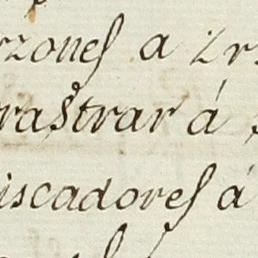 rzones a 2 rs
rastrar á
iscadores á